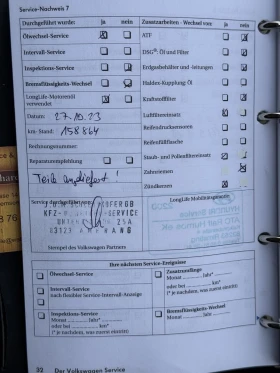 Service-Nachweis 7
Durchgeführt wurde: ja nein
Zusatzarbeiten - Wechsel von: ja nein
Ölwechsel-Service
ATF
Intervall-Service
DSG®: Öl und Filter
Inspektions-Service
Erdgasbehälter und -leitungen
Bremsflüssigkeits-Wechsel
Haldex-Kupplung: Öl
LongLife-Motorenöl
verwendet
Kraftstofffilter
Luftfiltereinsatz
Datum: 27.10.23
Reifendrucksensoren
km-Stand: 158864
Reifenfüllflasche
Rechnungsnummer:
Staub- und Pollenfiltereinsatz
Reparaturempfehlung
Zahnriemen
Teile angeliefert!
Zündkerzen
Service durchgeführt von:
LongLife Mobilitätsgarantie
KFZ-
SERVICE
83123 AMERANG
Stempel des Volkswagen Partners
Ihre nächsten Service-Ereignisse
Ölwechsel-Service
Intervall-Service
nach flexibler Service-Intervall-Anzeige
Inspektions-Service
Monat Jahr*
oder bei km*
(* je nachdem, was zuerst eintritt)
Zusatzumfänge
Monat Jahr*
oder bei km*
(* je nachdem, was zuerst eintritt)
Bremsflüssigkeits-Wechsel
Monat Jahr
32 Der Volkswagen Service